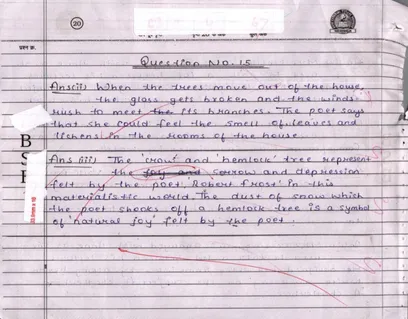 20
प्रश्न क्र.
Question No. 15
Ans(ii) When the trees move out of the house,
the glass gets broken and the winds
rush to meet the its branches. The poet says
that she could feel the smell of leaves and
lichens in the rooms of the house.
B
S
Ans (iii) The 'crow' and 'hemlock' tree represent
the joy and sorrow and depression
felt by the poet 'Robert Frost' in this
materialistic world. The dust of snow which
the poet shooks off a hemlock tree is a symbol
of 'natural joy' felt by the poet.